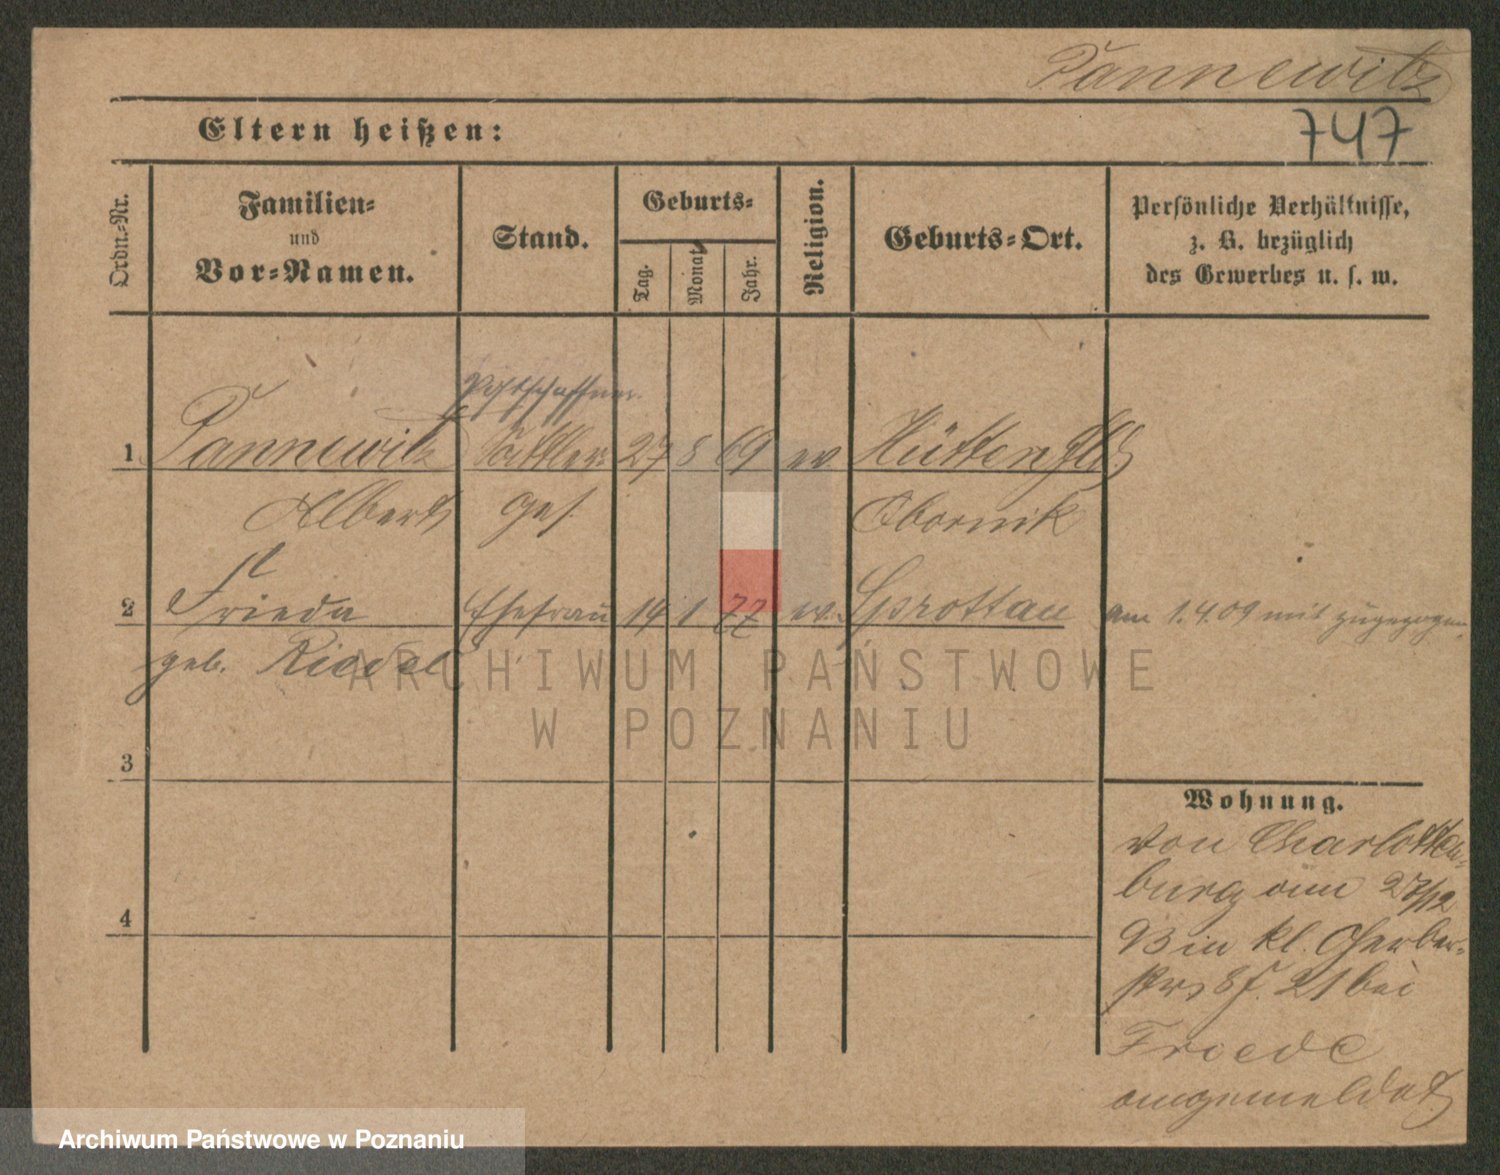 Pannewitz
747
Eltern heißen:
Ordn.-Nr.
Familien-
und
Vor-Namen.
Stand.
Geburts-
Tag.
Monat
Jahr.
Religion.
Geburts-Ort.
Persönliche Verhältnisse,
z. B. bezüglich
des Gewerbes u. s. w.
Postschaffner
1 Pannewitz Sattler 27 8 69 ev Hütten
Albert ges. Obornik
2 Frieda Ehefrau 14 1 77 ev. Sprottau am 1.4.09 mit zugezogen
geb. Riedel
ARCHIWUM PAŃSTWOWE
W POZNANIU
3
Wohnung.
von Charlotten-
burg am 27/12
93 in kl. Gerber-
str. 8 f. 21 bei
4
Friede
angemeldet
Archiwum Państwowe w Poznaniu